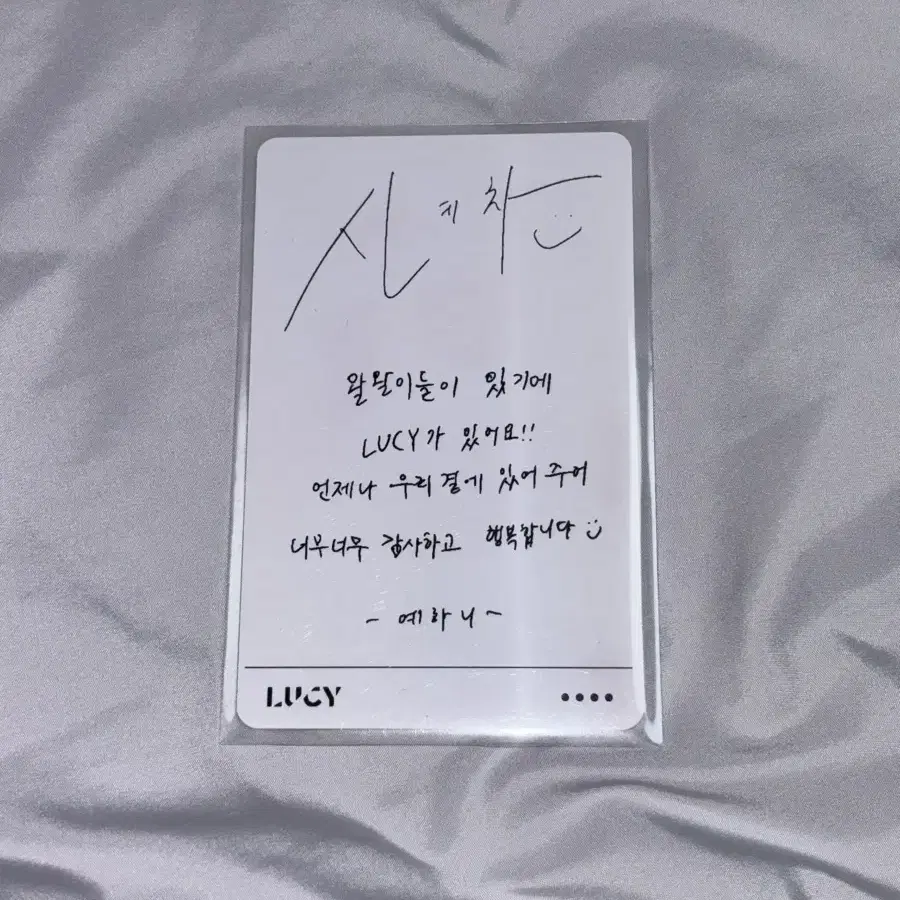 신예찬
왈왈이들이 있기에
LUCY가 있어요!!
언제나 우리 곁에 있어 주어
너무너무 감사하고 행복합니다
- 예하니 -
LUCY